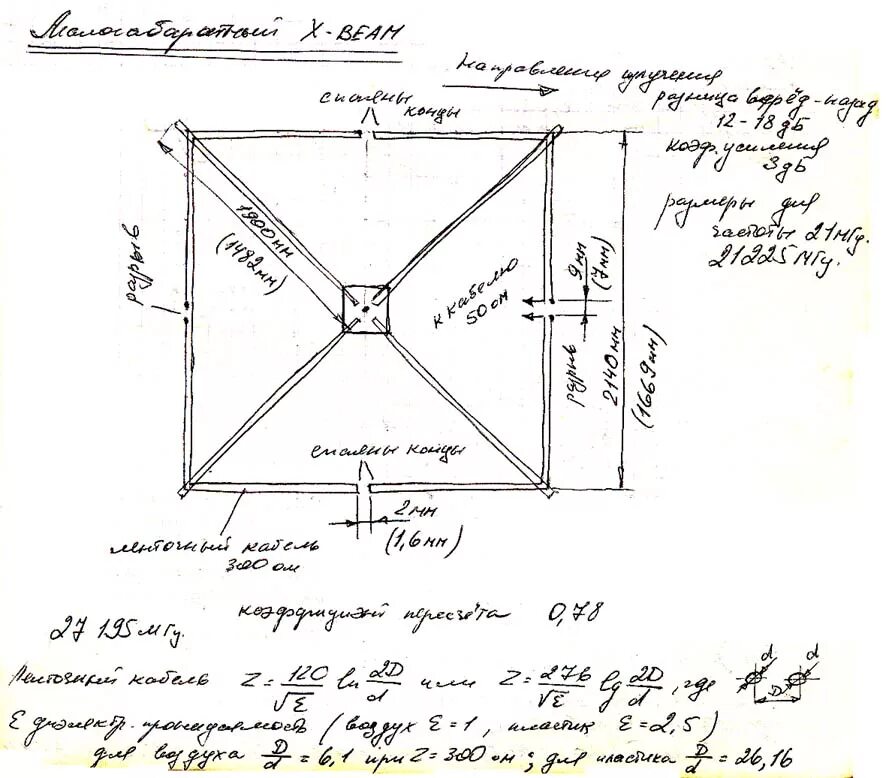 Малогабаритный X-BEAM
Направление излучения
разница вперёд-назад
12-18 дБ
коэф. усиления
3 дБ
размеры для
частоты 21 мГц.
21225 МГц.
спаяны
концы
1900 мм
(1482 мм)
разрыв
к кабелю
50 ом
9 мм
(7 мм)
разрыв
2140 мм
(1669 мм)
спаяны концы
2 мм
(1,6 мм)
ленточный кабель
300 ом
коэффициент пересчёта 0,78
27 195 мГц.
Ленточный кабель Z = 120/√Ɛ ln 2D/d или Z = 276/√Ɛ lg 2D/d, где
d d
D
Ɛ диэлектр. проницаемость (воздух Ɛ=1, пластик Ɛ=2,5)
для воздуха D/d = 6,1 при Z=300 ом; для пластика D/d = 26,16